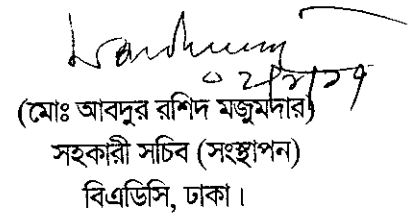 (মোঃ আবদুর রশিদ মজুমদার)
সহকারী সচিব (সংস্থাপন)
বিএডিসি, ঢাকা।